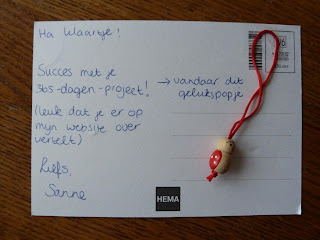 Ha Waartje!
Succes met je
365-dagen-project!
(leuk dat je er op
mijn website over
vertelt)
Liefs,
Sanne
→ vandaar dit
gelukspopje
HEMA